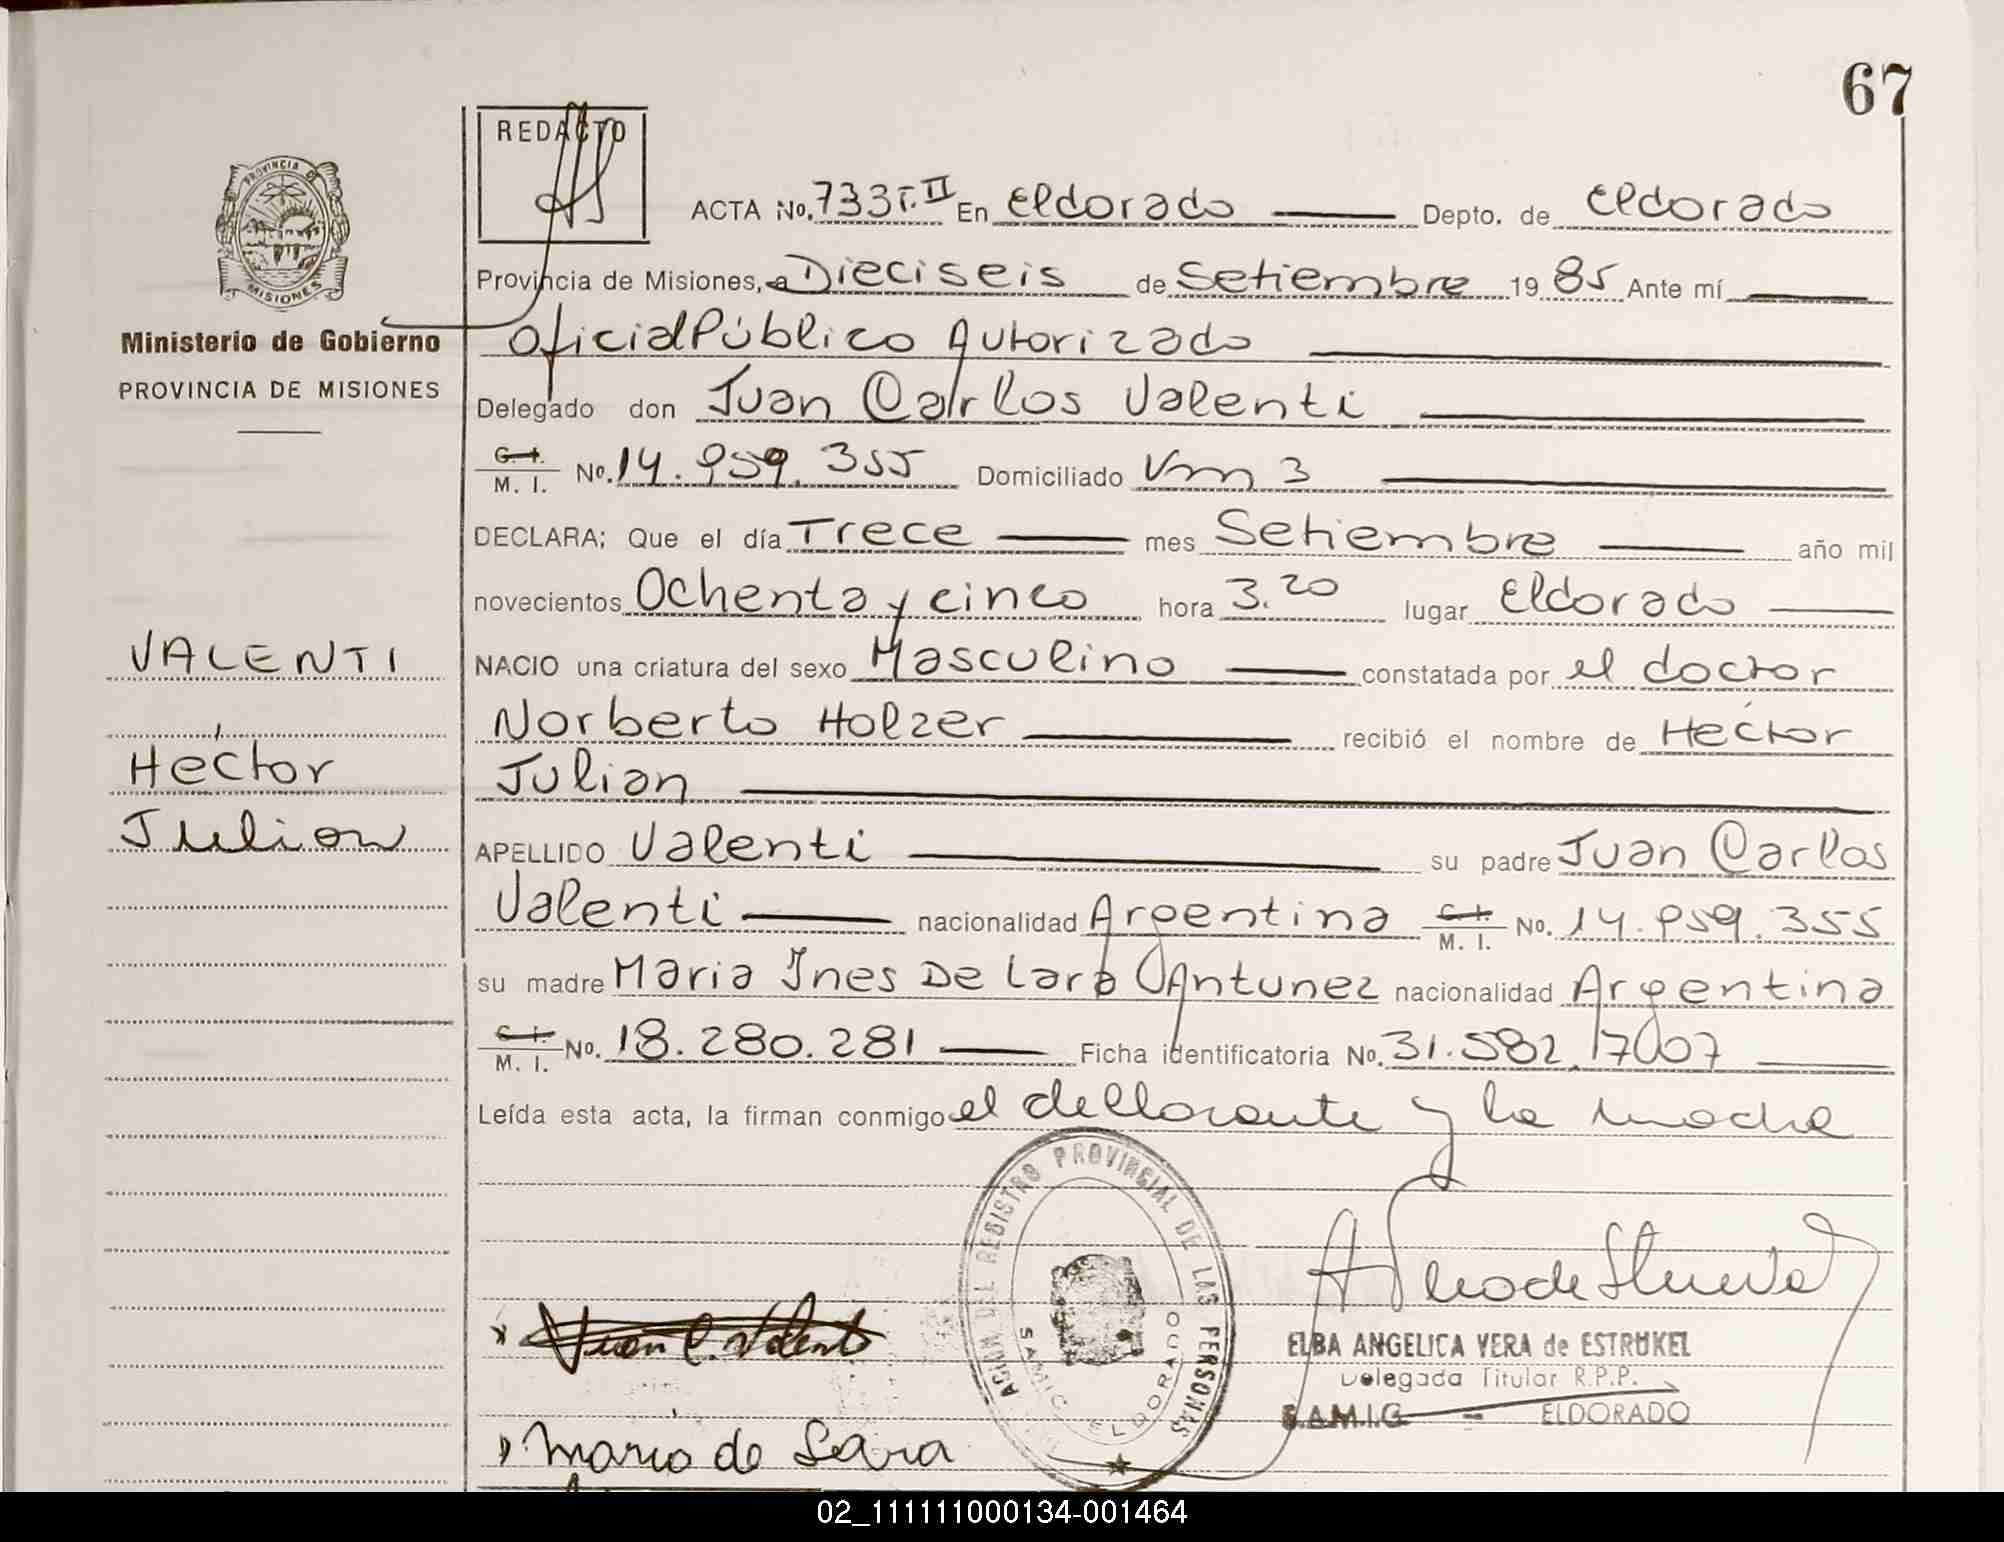 67
REDACTO
PROVINCIA DE
MISIONES
ACTA No. 733 T. II En Eldorado Depto. de Eldorado
Provincia de Misiones, a Dieciseis de Setiembre 19 85 Ante mí
Ministerio de Gobierno
PROVINCIA DE MISIONES
Oficial Público Autorizado
Delegado don Juan Carlos Valenti
C. I. M. I. No. 14.959.355 Domiciliado Km 3
DECLARA: Que el día Trece mes Setiembre año mil
novecientos Ochenta y cinco hora 3.20 lugar Eldorado
VALENTI
NACIO una criatura del sexo Masculino constatada por el doctor
Norberto Holzer recibió el nombre de Héctor
Héctor
Julian
Julian
APELLIDO Valenti su padre Juan Carlos
Valenti nacionalidad Argentina C. I. M. I. No. 14.959.355
su madre Maria Ines De Lara Antunez nacionalidad Argentina
C. I. M. I. No. 18.280.281 Ficha identificatoria No. 31.582.007
Leída esta acta, la firman conmigo el declarante y la madre
REGISTRO PROVINCIAL DE LAS PERSONAS
SAMIC ELDORADO
Juan C. Valenti
ELBA ANGELICA VERA de ESTRUKEL
Delegada Titular R.P.P.
S.A.M.I.C. - ELDORADO
Maria de Lara
02_111111000134-001464